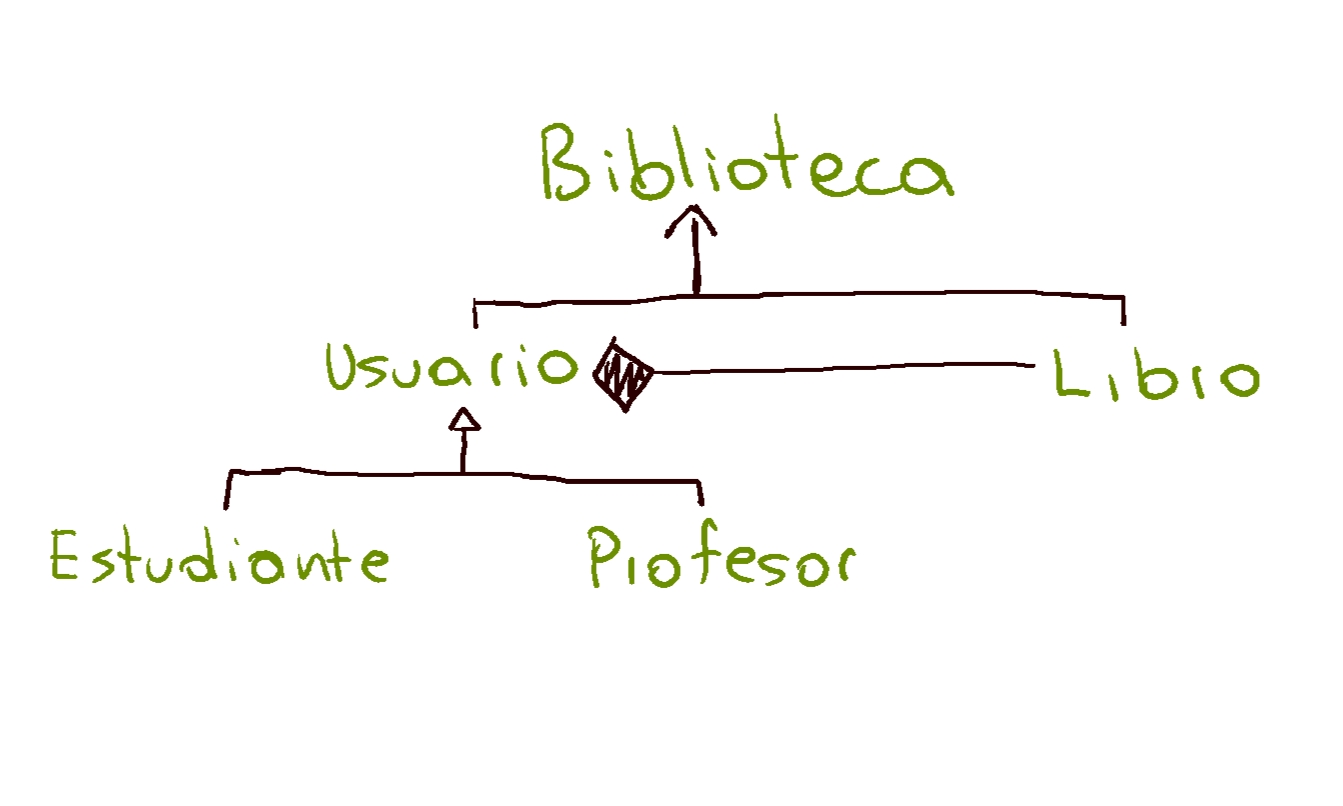 Biblioteca
Usuario Libro
Estudiante Profesor